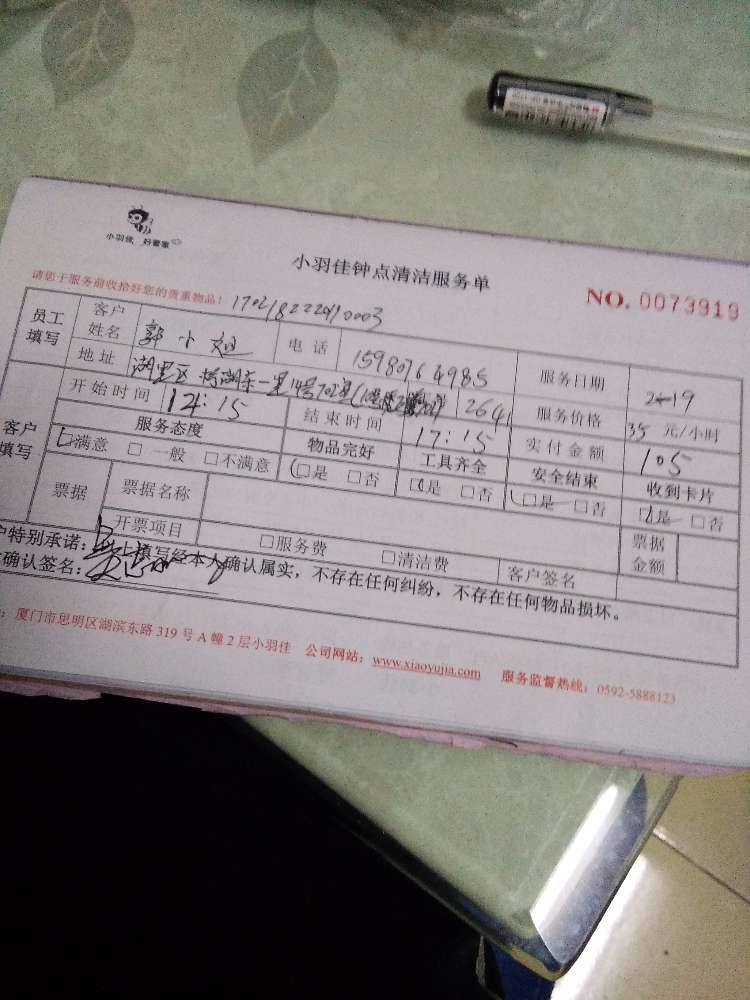 小羽佳 好管家
小羽佳钟点清洁服务单
请您于服务前收拾好您的贵重物品！
NO. 0073919
员工填写 客户姓名 郭小姐 电话 服务日期 2-19
地址 湖里区 2641 服务价格 35 元/小时
客户填写 开始时间 14:15 结束时间 17:15 实付金额 105
服务态度 物品完好 工具齐全 安全结束 收到卡片
☑满意 □一般 □不满意 ☑是 □否 ☑是 □否 ☑是 □否 ☑是 □否
票据 票据名称 票据金额
开票项目 □服务费 □清洁费 客户签名
户特别承诺：以上填写经本人确认属实，不存在任何纠纷，不存在任何物品损坏。
确认签名：
厦门市思明区湖滨东路 319 号 A 幢 2 层小羽佳 公司网站：www.xiaoyujia.com 服务监督热线：0592-5888123